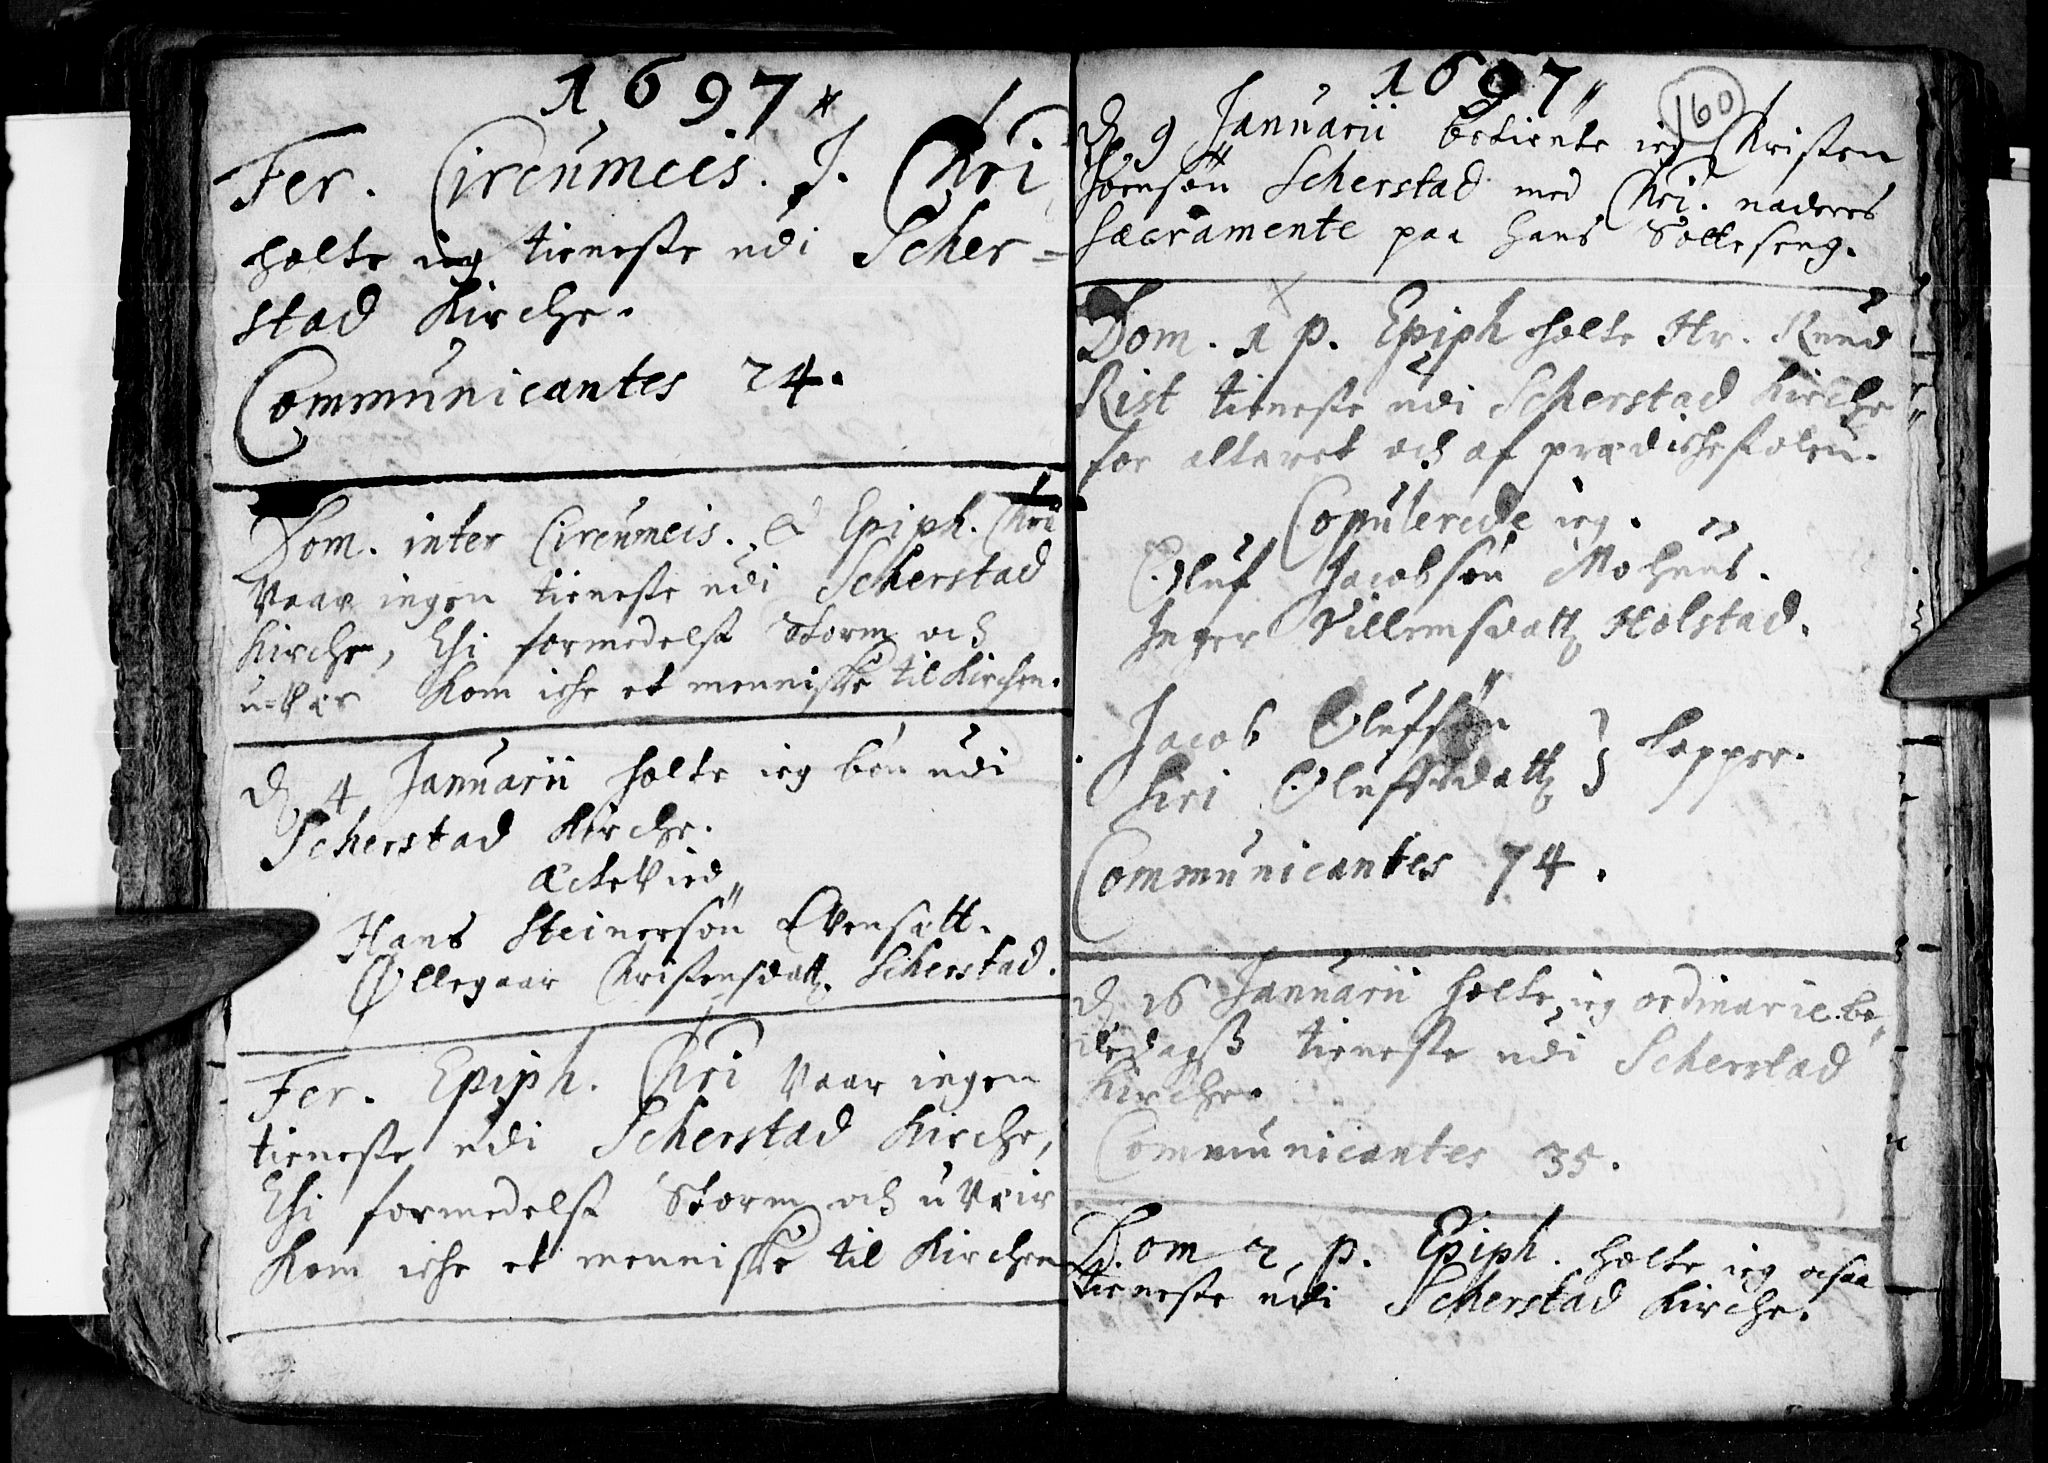 1697
Fer. Circumcis. J. Chri
holte ieg tieneste udi Scher=
stad Kirche.
Communicantes 24.
Dom. inter Circumcis. & Epiph. Chri
Vaar ingen tieneste udi Scherstad
Kirche, thi formedelst Storm och
u-Vær kom iche et menniske til Kirchen.
d. 4 Januarii holte ieg bøn udi
Scherstad Kirche.
ÆcteVied
Hans Steinersøn Evensætt.
Øllegaar Christensdatt. Scherstad.
Fer. Epiph. Chri Vaar ingen
tieneste udi Scherstad Kirche,
thi formedelst Storm och uVeir
kom iche et menniske til Kirchen
1697
160
d. 9 Januarii betiente ieg Christen
Scherstad med Chri. naderes
Sacramente paa hans Sotteseng.
Dom. 1 p. Epiph holte Hr. Knud
Rist tieneste udi Scherstad Kirche
for alteret och af prædichestolen.
Copulerede ieg.
Oluf Jacobsøn Mohuus.
Inger Villumsdatt Holstad.
Jacob Olufsøn
Siri Olufsdatt } Lapper.
Communicantes 74.
d. 16 Januarii holte ieg ordinarie be-
dedagss tieneste udi Scherstad
Kirche.
Communicantes 35.
Dom 2 p. Epiph. holte ieg ochsaa
tieneste udi Scherstad Kirche.